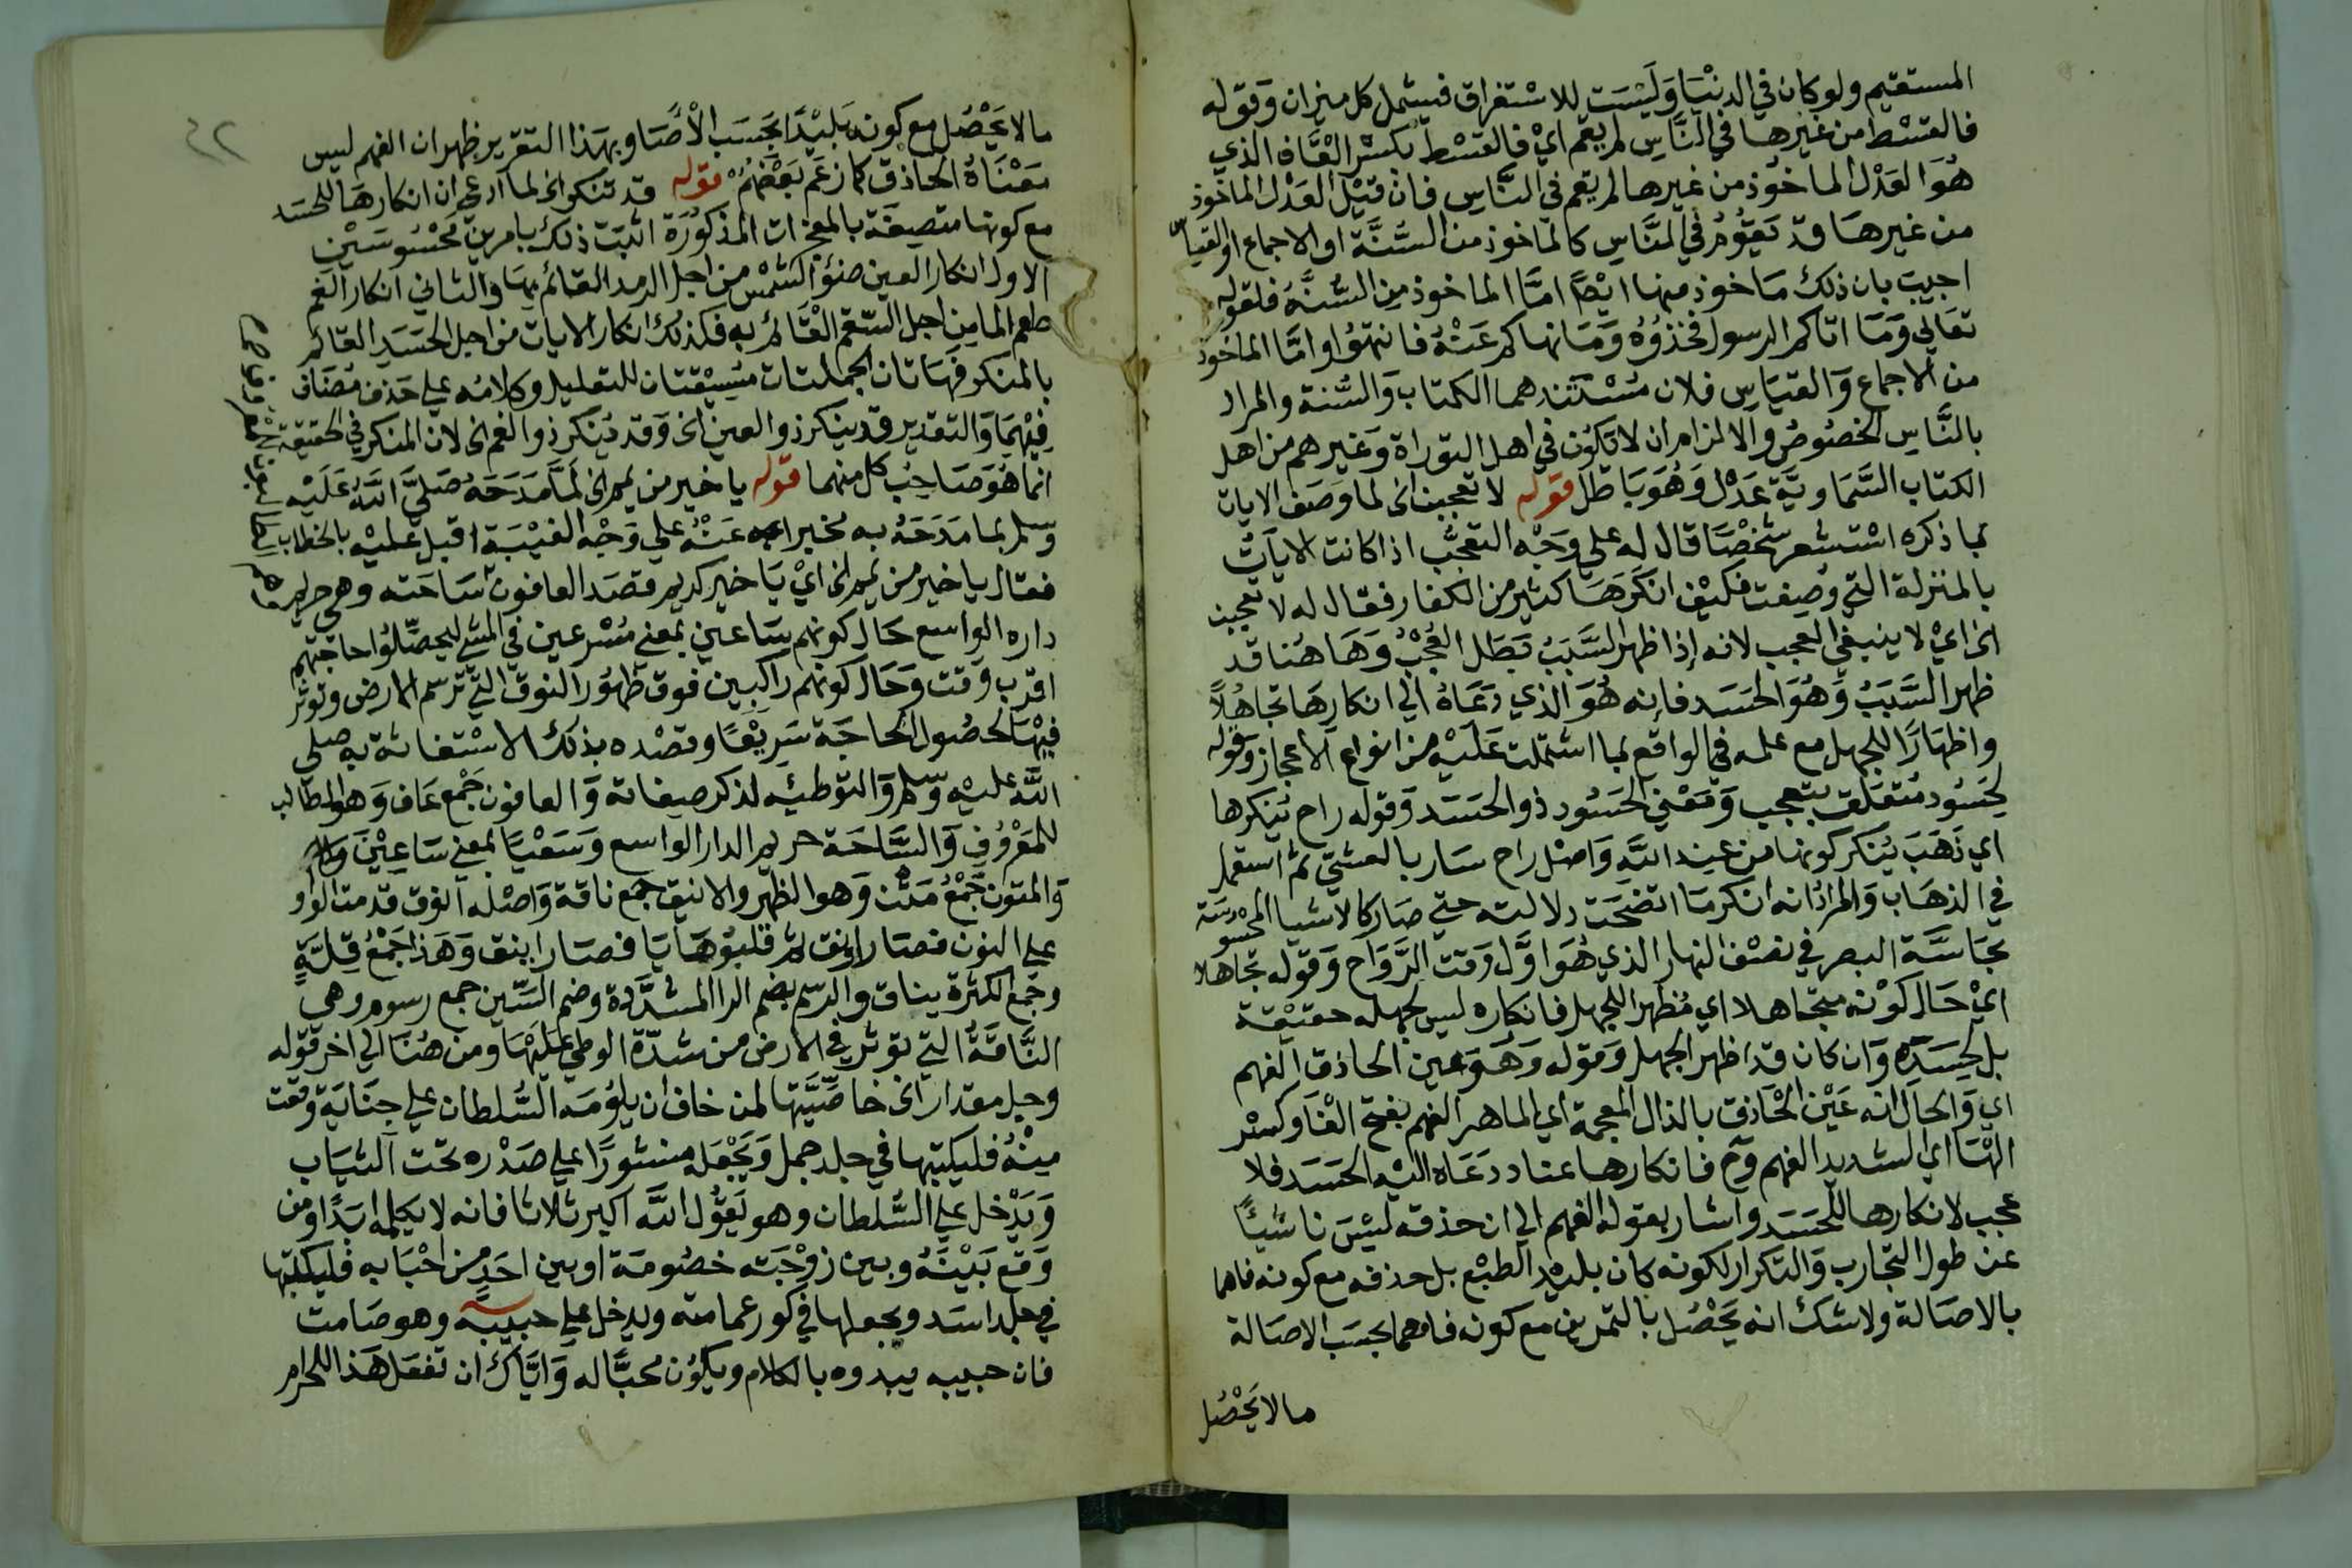 المستقيم ولو كان في الدنيا وليست للاستغراق فيشمل كل ميزان وقوله
فالقسط من غيرها في الناس لم يقم اي فالقسط بكسر القاف الذي
هو العدل الماخوذ من غيرها لم يقم في الناس فان قيل العدل الماخوذ
من غيرها قد يقوم في الناس كالماخوذ من السنة او الاجماع او القياس
اجيب بان ذلك ماخوذ منها ايضا اما الماخوذ من السنة فلقوله
تعالي وما اتاكم الرسول فخذوه وما نهاكم عنه فانتهوا واما الماخوذ
من الاجماع والقياس فلان مستندهما الكتاب والسنة والمراد
بالناس الخصوص والا لزم ان لا تكون في اهل التوراة وغيرهم من اهل
الكتاب السماوية عدل وهو باطل قوله لا تعجبن الخ لما وصف الايات
بما ذكره استشعر شخصا قال له علي وجه التعجب اذا كانت الايات
بالمنزلة التي وصفت فكيف انكرها كثير من الكفار فقال له لا تعجبن
الخ اي لا ينبغي العجب لانه إذا ظهر السبب بطل العجب وهاهنا قد
ظهر السبب وهو الحسد فإنه هو الذي دعاه الي انكارها تجاهلا
واظهارا للجهل مع علمه في الواقع بما اشتملت عليه من انواع الاعجاز وقوله
لحسود متعلق بتعجب ومعني الحسود ذو الحسد وقوله راح ينكرها
اي ذهب ينكر كونها من عند الله واصل راح سار بالعشي ثم استعمل
في الذهاب والمراد انه انكر ما اتضحت دلالته حتي صار كالاشيا المحسوسة
بحاسة البصر في نصف النهار الذي هو اول وقت الرواح وقوله تجاهلا
اي حال كونه متجاهلا اي مظهرا للجهل فانكاره ليس لجهله حقيقة
بل لحسده وان كان قد اظهر الجهل وقوله وهو عين الحاذق الفهم
اي والحال انه عين الحاذق بالذال المعجمة اي الماهر الفهم بفتح الفا وكسر
الها اي الشديد الفهم وح فانكارها عناد دعاه اليه الحسد فلا
عجب لانكارها للحسد واشار بقوله الفهم الي ان حذقه ليس ناشئا
عن طول التجارب والتكرار لكونه كان بليد الطبع بل حذقه مع كونه فاهما
بالاصالة ولا شك انه يحصل بالتمرين مع كونه فاهما بحسب الاصالة
ما لا يحصل
٤٢
ما لا يحصل مع كونه بليدا بحسب الاصا وبهذا التقرير ظهر ان الفهم ليس
معناه الحاذق كما زعم بعضهم قوله قد تنكر الخ لما ادعي ان انكارها للحسد
مع كونها متصفة بالمعجزات المذكورة اثبت ذلك بامرين محسوسين
الاول انكار العين ضوء الشمس من اجل الرمد القائم بها والثاني انكار الفم
طعم الما من اجل السقم القائم به فكذلك انكار الايات من اجل الحسد القائم
بالمنكر فهاتان الجملتان مسيقتان للتعليل وكلامه علي حذف مضاف
فيهما والتقدير قد ينكر ذو العين الخ وقد ينكر ذو الفم الخ لان المنكر في الحقيقة
انما هو صاحب كل منهما قوله يا خير من يمم الخ لما مدحه صلي الله عليه
وسلم بما مدحه به مخبرا به عنه علي وجه الغيبة اقبل عليه بالخطاب
فقال يا خير من يمم الخ اي يا خير كريم قصد العافون ساحته وهي حريم
داره الواسع حال كونهم ساعين بمعني مسرعين في المشي ليحصلوا حاجتهم
اقرب وقت وحال كونهم راكبين فوق ظهور النوق التي ترسم الارض وتوثر
فيها لحصول الحاجة سريعا وقصده بذلك الاستغاثة به صلي
الله عليه وسلم والتوطئه لذكر صفاته والعافون جمع عاف وهو الطالب
للمعروف والساحة حريم الدار الواسع وسعيا بمعني ساعين
والمتون جمع متن وهو الظهر والاينق جمع ناقة واصله انوق قدمت الواو
علي النون فصار اونق ثم قلبوها يا فصار اينق وهذا جمع قلة
وجمع الكثرة نياق والرسم بضم الرا المشددة وضم السين جمع رسوم وهي
الناقة التي توثر في الارض من شدة الوطي عليها ومن هنا الي اخر قوله
وجل مقدار الخ خاصيتها لمن خاف ان يلومه السلطان علي جناية وقعت
منه فليكتبها في جلد جمل ويجعله منشورا علي صدره تحت الثياب
ويدخل علي السلطان وهو يقول الله اكبر ثلاثا فانه لا يكلمه ابدا ومن
وقع بينه وبين زوجته خصومة او بين احد من احبابه فليكتبها
في جلد اسد ويجعلها في كور عمامته وليدخل علي حبيبه وهو صامت
فان حبيبه يبدوه بالكلام ويكون محبا له واياك ان تفعل هذا للحرام